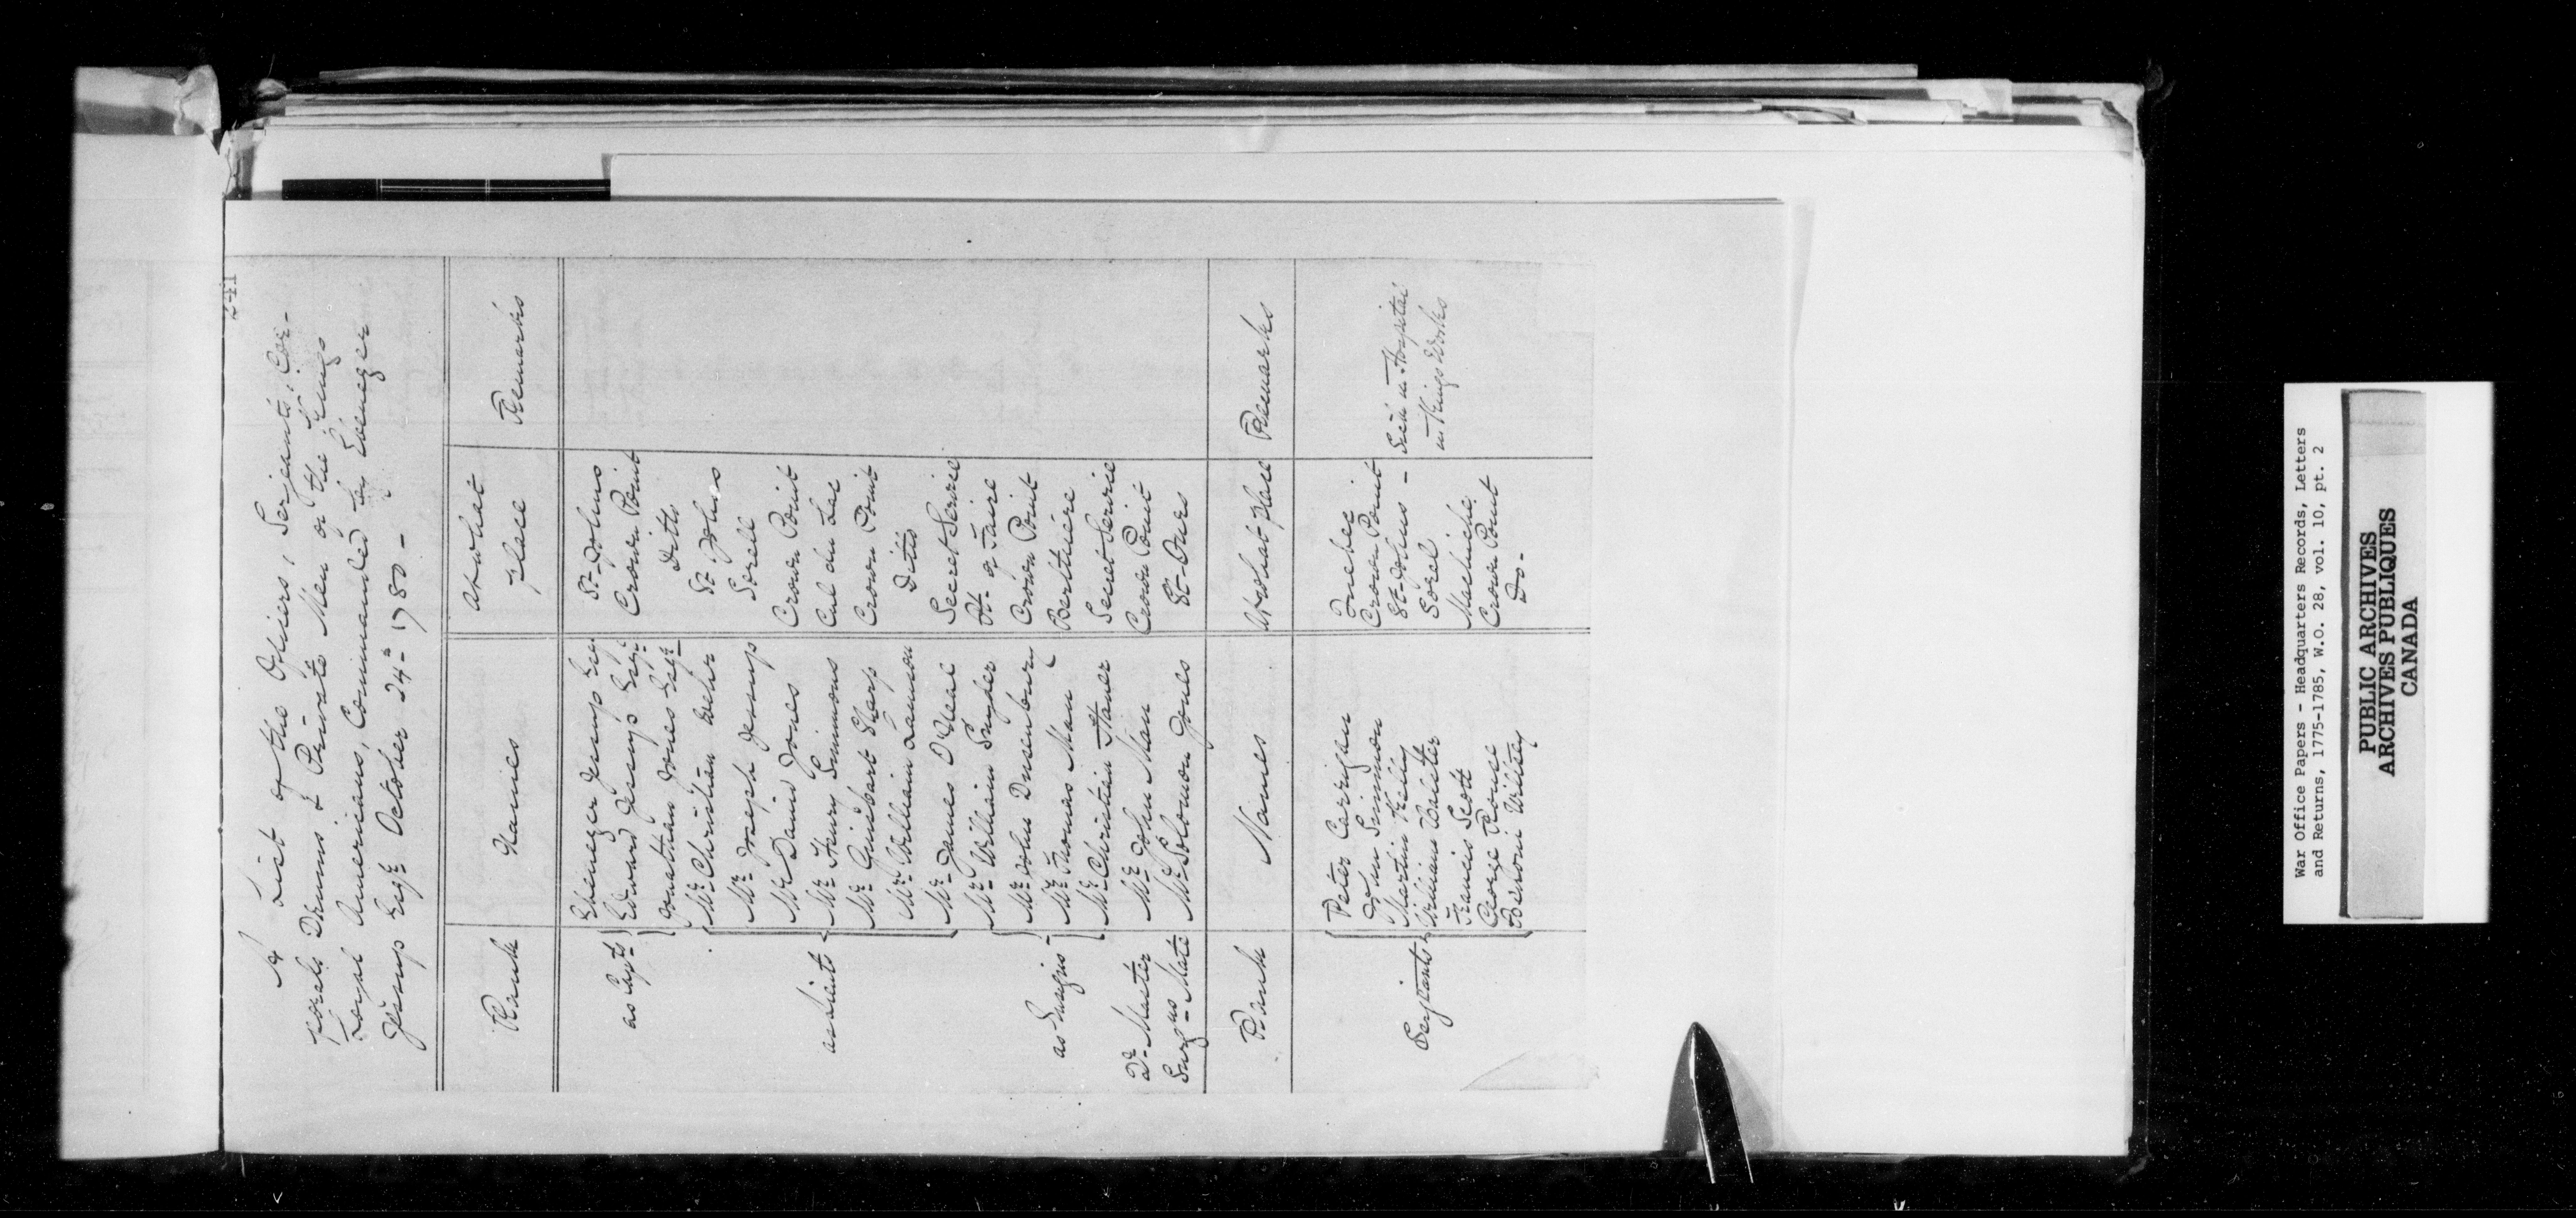 241
A List of the Officers, Serjeants, Cor-
porals Drums & Private Men of the Kings
Loyal Americans, Commanded by Ebenezer
Jessup Esqr October 24th 1780 -
Rank Names At what place Remarks
as Capts Ebenezer Jessup Esqr St Johns
Edward Jessup Esqr Crown Point
Jonathan Jones Esqr Ditto
as Lieuts Mr Christian Wehr St Johns
Mr Joseph Jessup Sorell
Mr David Jones Crown Point
Mr Henry Simmons Cul du Lac
Mr Guisbart Sharp Crown Point
Mr William Lamson Ditto
Mr James O'Neal Secret Service
as Ensigns Mr William Snyder at
Mr John Dusenbury Crown Point
Mr Thomas Man Berthiere
Mr Christian Haner Secret Service
Qr Master Mr John Man Crown Point
Surgns Mate Mr Solomon Jones St Ours
Rank Names At what place Remarks
Serjeants Peter Carrigan Quebec
John Simmon Crown Point
Martin Kelly St Johns - Sick in Hospital
William Sorel in Kings Works
Francis Scott Machiche
George Rouse Crown Point
Benoni Wiltsey Do.
War Office Papers - Headquarters Records, Letters
and Returns, 1775-1785, W.O. 28, vol. 10, pt. 2
PUBLIC ARCHIVES
ARCHIVES PUBLIQUES
CANADA